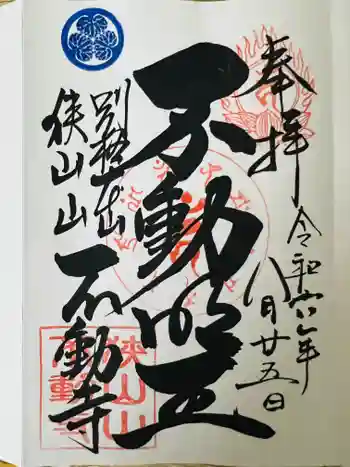 奉拝
令和六年
八月廿五日
不動明王
別格本山
狭山山
不動寺
狭山山
不動寺